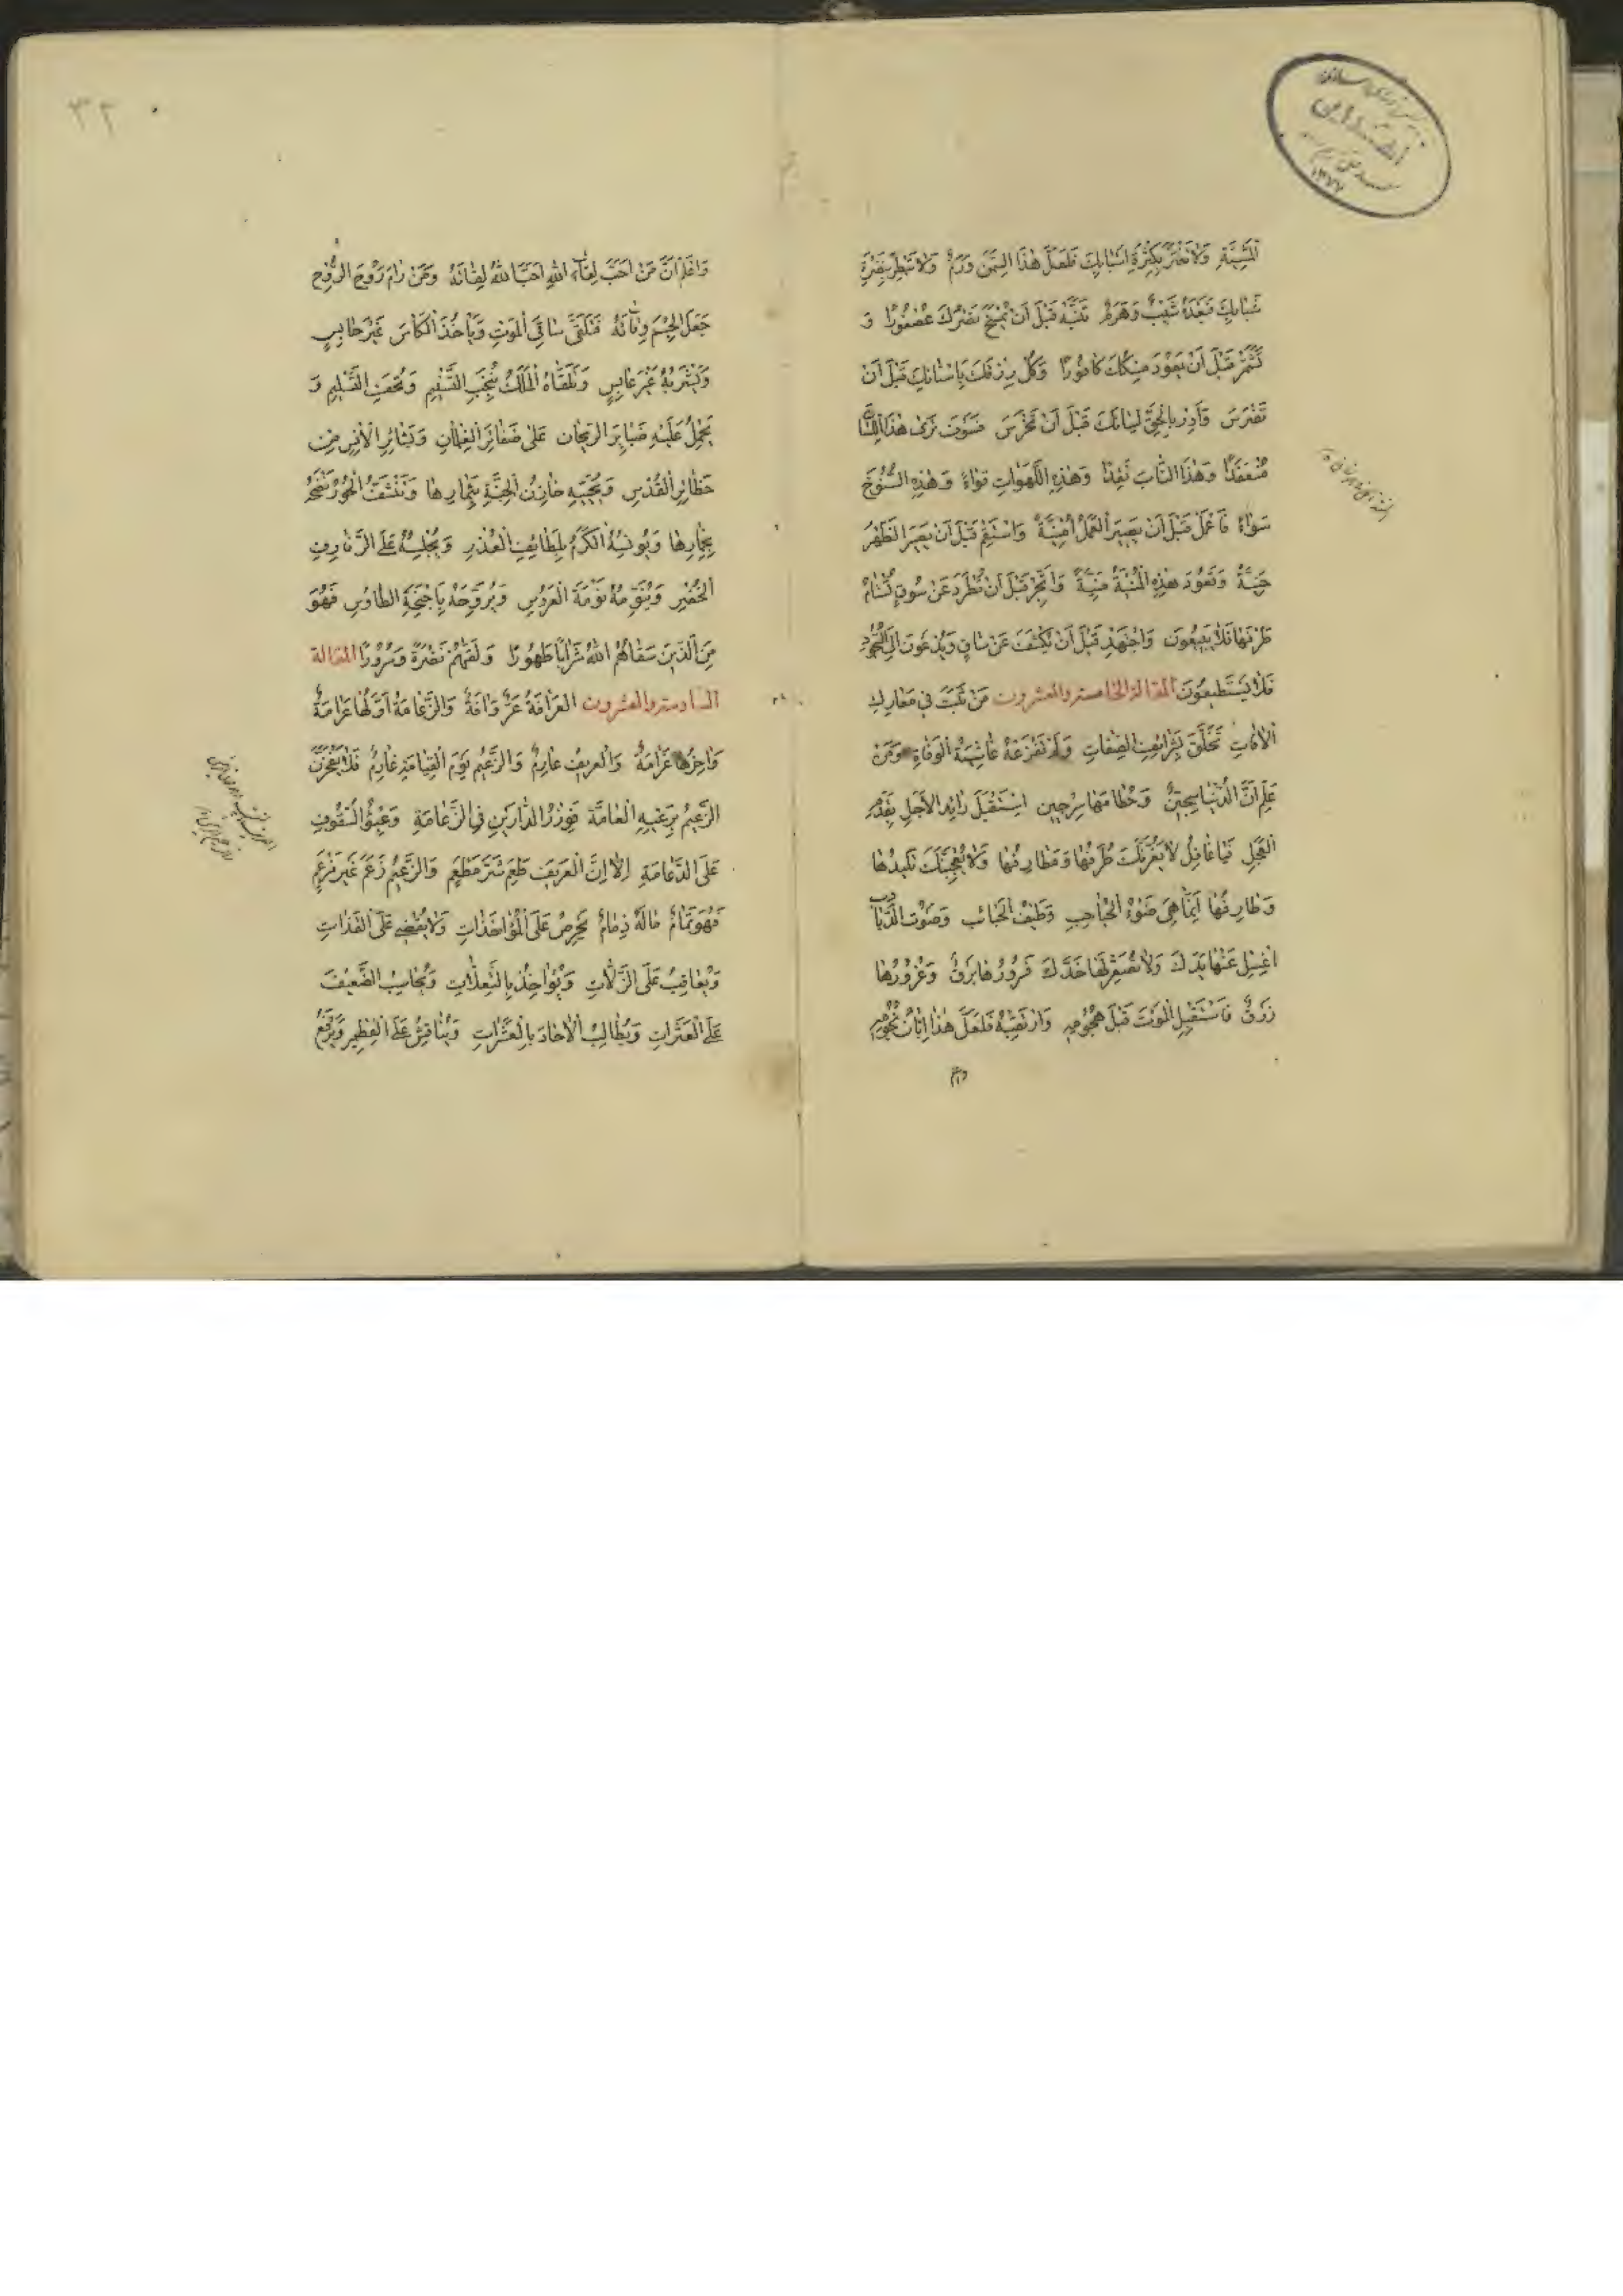 الْمَشِيَّةِ وَلَا تَغْتَرَّ بِكَثْرَةِ اَسْبَابِكَ فَلَعَلَّ هٰذَا السِّمَنَ وَرَمٌ وَلَا تَبْطَرْ بِنَضْرَةِ
شَبَابِكَ فَبَعْدَهُ شَيْبٌ وَهَرَمٌ تَنَبَّهْ قَبْلَ اَنْ يُمْسَخَ نَسْرُكَ عُصْفُورًا وَ
شَمِّرْ قَبْلَ اَنْ يَعُودَ مِسْكُكَ كَافُورًا وَكُلْ رِزْقَكَ بِاَسْنَانِكَ قَبْلَ اَنْ
تَضْرَسَ وَاَدِرْ بِالْحَقِّ لِسَانَكَ قَبْلَ اَنْ تَخْرَسَ فَسَوْفَ تَرٰى هٰذَا اللِّسَانَ
مُنْعَقِدًا وَهٰذَا النَّابَ نَقِدًا وَهٰذِهِ اللَّهَوَاتِ وَهٰذِهِ السُّنُوخَ
سَوَاءً فَاعْمَلْ قَبْلَ اَنْ يَصِيرَ الْعَمَلُ اُمْنِيَّةً وَاسْتَقِمْ قَبْلَ اَنْ يَصِيرَ الظَّهْرُ
حَنِيَّةً وَتَعُودَ هٰذِهِ الْمُنْيَةُ مَنِيَّةً وَاتَّجِرْ قَبْلَ اَنْ تُطْرَدَ عَنْ سُوقٍ تُسَامُ
طُرَفُهَا فَلَا يَبِيعُونَ وَاجْتَهِدْ قَبْلَ اَنْ يُكْشَفَ عَنْ سَاقٍ وَيُدْعَوْنَ اِلَى السُّجُودِ
فَلَا يَسْتَطِيعُونَ المقالة الخامسة والعشرون مَنْ ثَبَتَ فِي مَعَارِكِ
الْآفَاتِ تَخَلَّقَ بِشَرَائِفِ الصِّفَاتِ وَلَمْ تُفْزِعْهُ غَاشِيَةُ الْوَفَاةِ وَمَنْ
عَلِمَ اَنَّ الدُّنْيَا سِجِّينٌ وَحُطَامَهَا سِرْجِينٌ اِسْتَقْبَلَ رَائِدَ الْاَجَلِ بِقَدَمِ
الْعَجَلِ فَيَا غَافِلُ لَا يَغُرَّنَّكَ طُرَفُهَا وَمَطَارِفُهَا وَلَا يُعْجِبَنَّكَ تَلِيدُهَا
وَطَارِفُهَا اِنَّمَا هِيَ ضَوْءُ الْحُبَاحِبِ وَطَيْفُ الْحَبَائِبِ وَصَوْتُ الذُّبَابِ
اِغْسِلْ عَنْهَا يَدَكَ وَلَا تُصَعِّرْ لَهَا خَدَّكَ فَزُورُهَا بَرْقٌ وَغُرُورُهَا
زَرْقٌ فَاسْتَقْبِلِ الْمَوْتَ قَبْلَ هُجُومِهِ وَارْتَقِبْهُ فَلَعَلَّ هٰذَا اِبَّانُ نُجُومِهِ
واعلم
٣٢
وَاعْلَمْ اَنَّ مَنْ اَحَبَّ لِقَاءَ اللّٰهِ اَحَبَّ اللّٰهُ لِقَائَهُ وَمَنْ رَامَ رَوْحَ الرُّوحِ
جَعَلَ الْجِسْمَ وِقَائَهُ فَتَلَقَّى سَاقِيَ الْمَوْتِ وَيَأْخُذُ الْكَأْسَ غَيْرَ حَابِسٍ
وَيَشْرَبُهُ غَيْرَ عَابِسٍ وَتَلَقَّاهُ الْمَلَكُ بِنُخَبِ التَّسْنِيمِ وَتُحَفِ التَّسْلِيمِ وَ
يَحْمِلُ عَلَيْهِ ضَبَايِرَ الرَّيْحَانِ عَلٰى ضَفَائِرِ الْغِلْمَانِ وَبَشَائِرِ الْاُنْسِ مِنْ
حَظَائِرِ الْقُدْسِ وَيُحَيِّيهِ خَازِنُ الْجَنَّةِ بِثِمَارِهَا وَتُنَشِّفُ الْحُورُ نَضْحَهُ
بِخِمَارِهَا وَيُونِسُهُ الْكَرَمُ بِلَطَائِفِ الْعُذْرِ وَيُجْلِسُهُ عَلَى الرَّفَارِفِ
الْخُضْرِ وَيُنَوِّمُهُ نَوْمَةَ الْعَرُوسِ وَيُرَوِّحُهُ بِاَجْنِحَةِ الطَّاوُسِ فَهُوَ
مِنَ الَّذِينَ سَقَاهُمُ اللّٰهُ شَرَابًا طَهُورًا وَلَقّٰهُمْ نَضْرَةً وَسُرُورًا المقالة
السادسة والعشرون الْعَرَافَةُ عُرٌّ وَآفَةٌ وَالزَّعَامَةُ اَوَّلُهَا عَرَامَةٌ
وَآخِرُهَا غَرَامَةٌ وَالْعَرِيفُ عَارِمٌ وَالزَّعِيمُ يَوْمَ الْقِيَامَةِ غَارِمٌ فَلَا يَفْخَرَنَّ
الزَّعِيمُ الْعَامَّةِ فَوِزْرُ الدَّارَيْنِ فِي الزَّعَامَةِ وَعِبْؤُ السُّقُوفِ
عَلَى الدِّعَامَةِ اِلَّا اِنَّ الْعَرِيفَ طَعِمَ شَرَّ مَطْعَمٍ وَالزَّعِيمُ زَعَمَ غَيْرَ مَزْعَمٍ
فَهُوَ نَمَّامٌ مَالَهُ ذِمَامٌ يَحْرِصُ عَلَى الْمُؤَاخَذَاتِ وَلَا يُغْضِي عَلَى الْقَذَاتِ
وَيُعَاقِبُ عَلَى الزَّلَّاتِ وَيُؤَاخِذُ بِالتَّعِلَّاتِ وَيُحَاسِبُ الضَّعِيفَ
عَلَى الْعَثَرَاتِ وَيُطَالِبُ الْآحَادَ بِالْعَشَرَاتِ وَيُنَاقِشُ عَلَى الْفَطِيرِ وَيَرْفَعُ